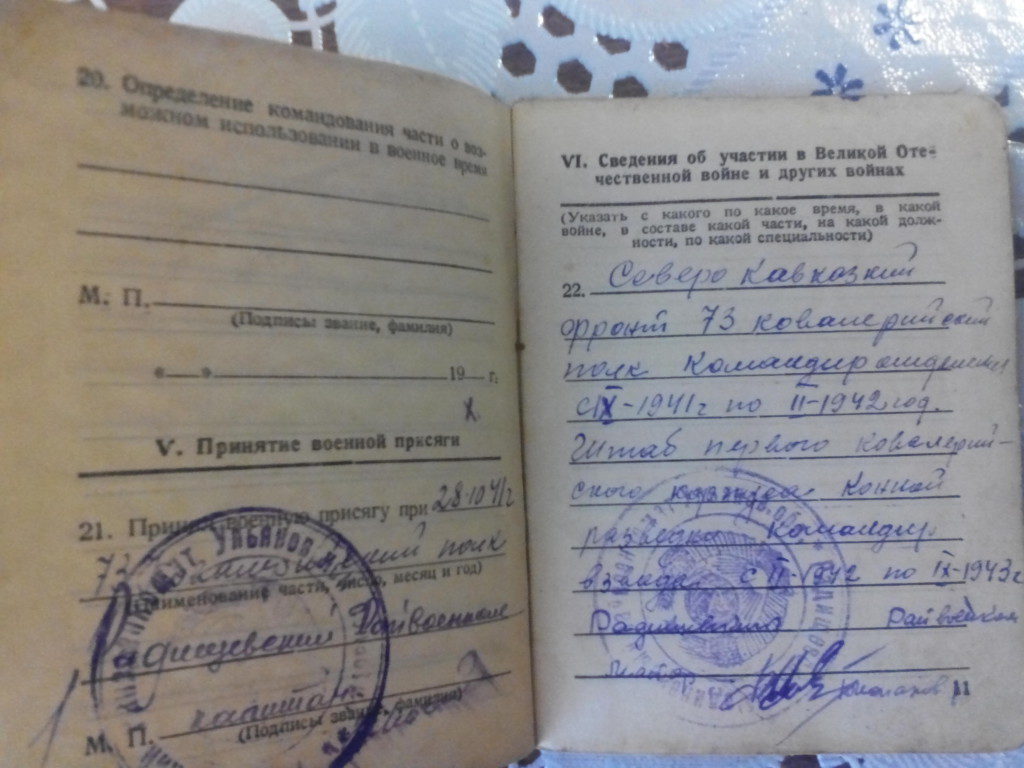 20. Определение командования части о воз-
можном использовании в военное время
М. П.
(Подписы звание, фамилия)
«__»____19__г.
V. Принятие военной присяги
21. Принял военную присягу при 28.10.41г
73 полк
(Наименование части, число, месяц и год)
Радищевский Райвоенком
капитан
М. П.
(Подписы звание, фамилия)
VI. Сведения об участии в Великой Оте-
чественной войне и других войнах
(Указать с какого по какое время, в какой
войне, в составе какой части, на какой долж-
ности, по какой специальности)
22. Северо Кавказкий
фронт 73 ковалерийский
полк Командир отделения
с IX-1941г по II-1942 год.
Штаб первого ковалерий-
ского корпуса Конной
разведки Командир
взвода с II-1942 по IX-1943г
Радищевский Райвоенком
майор
11